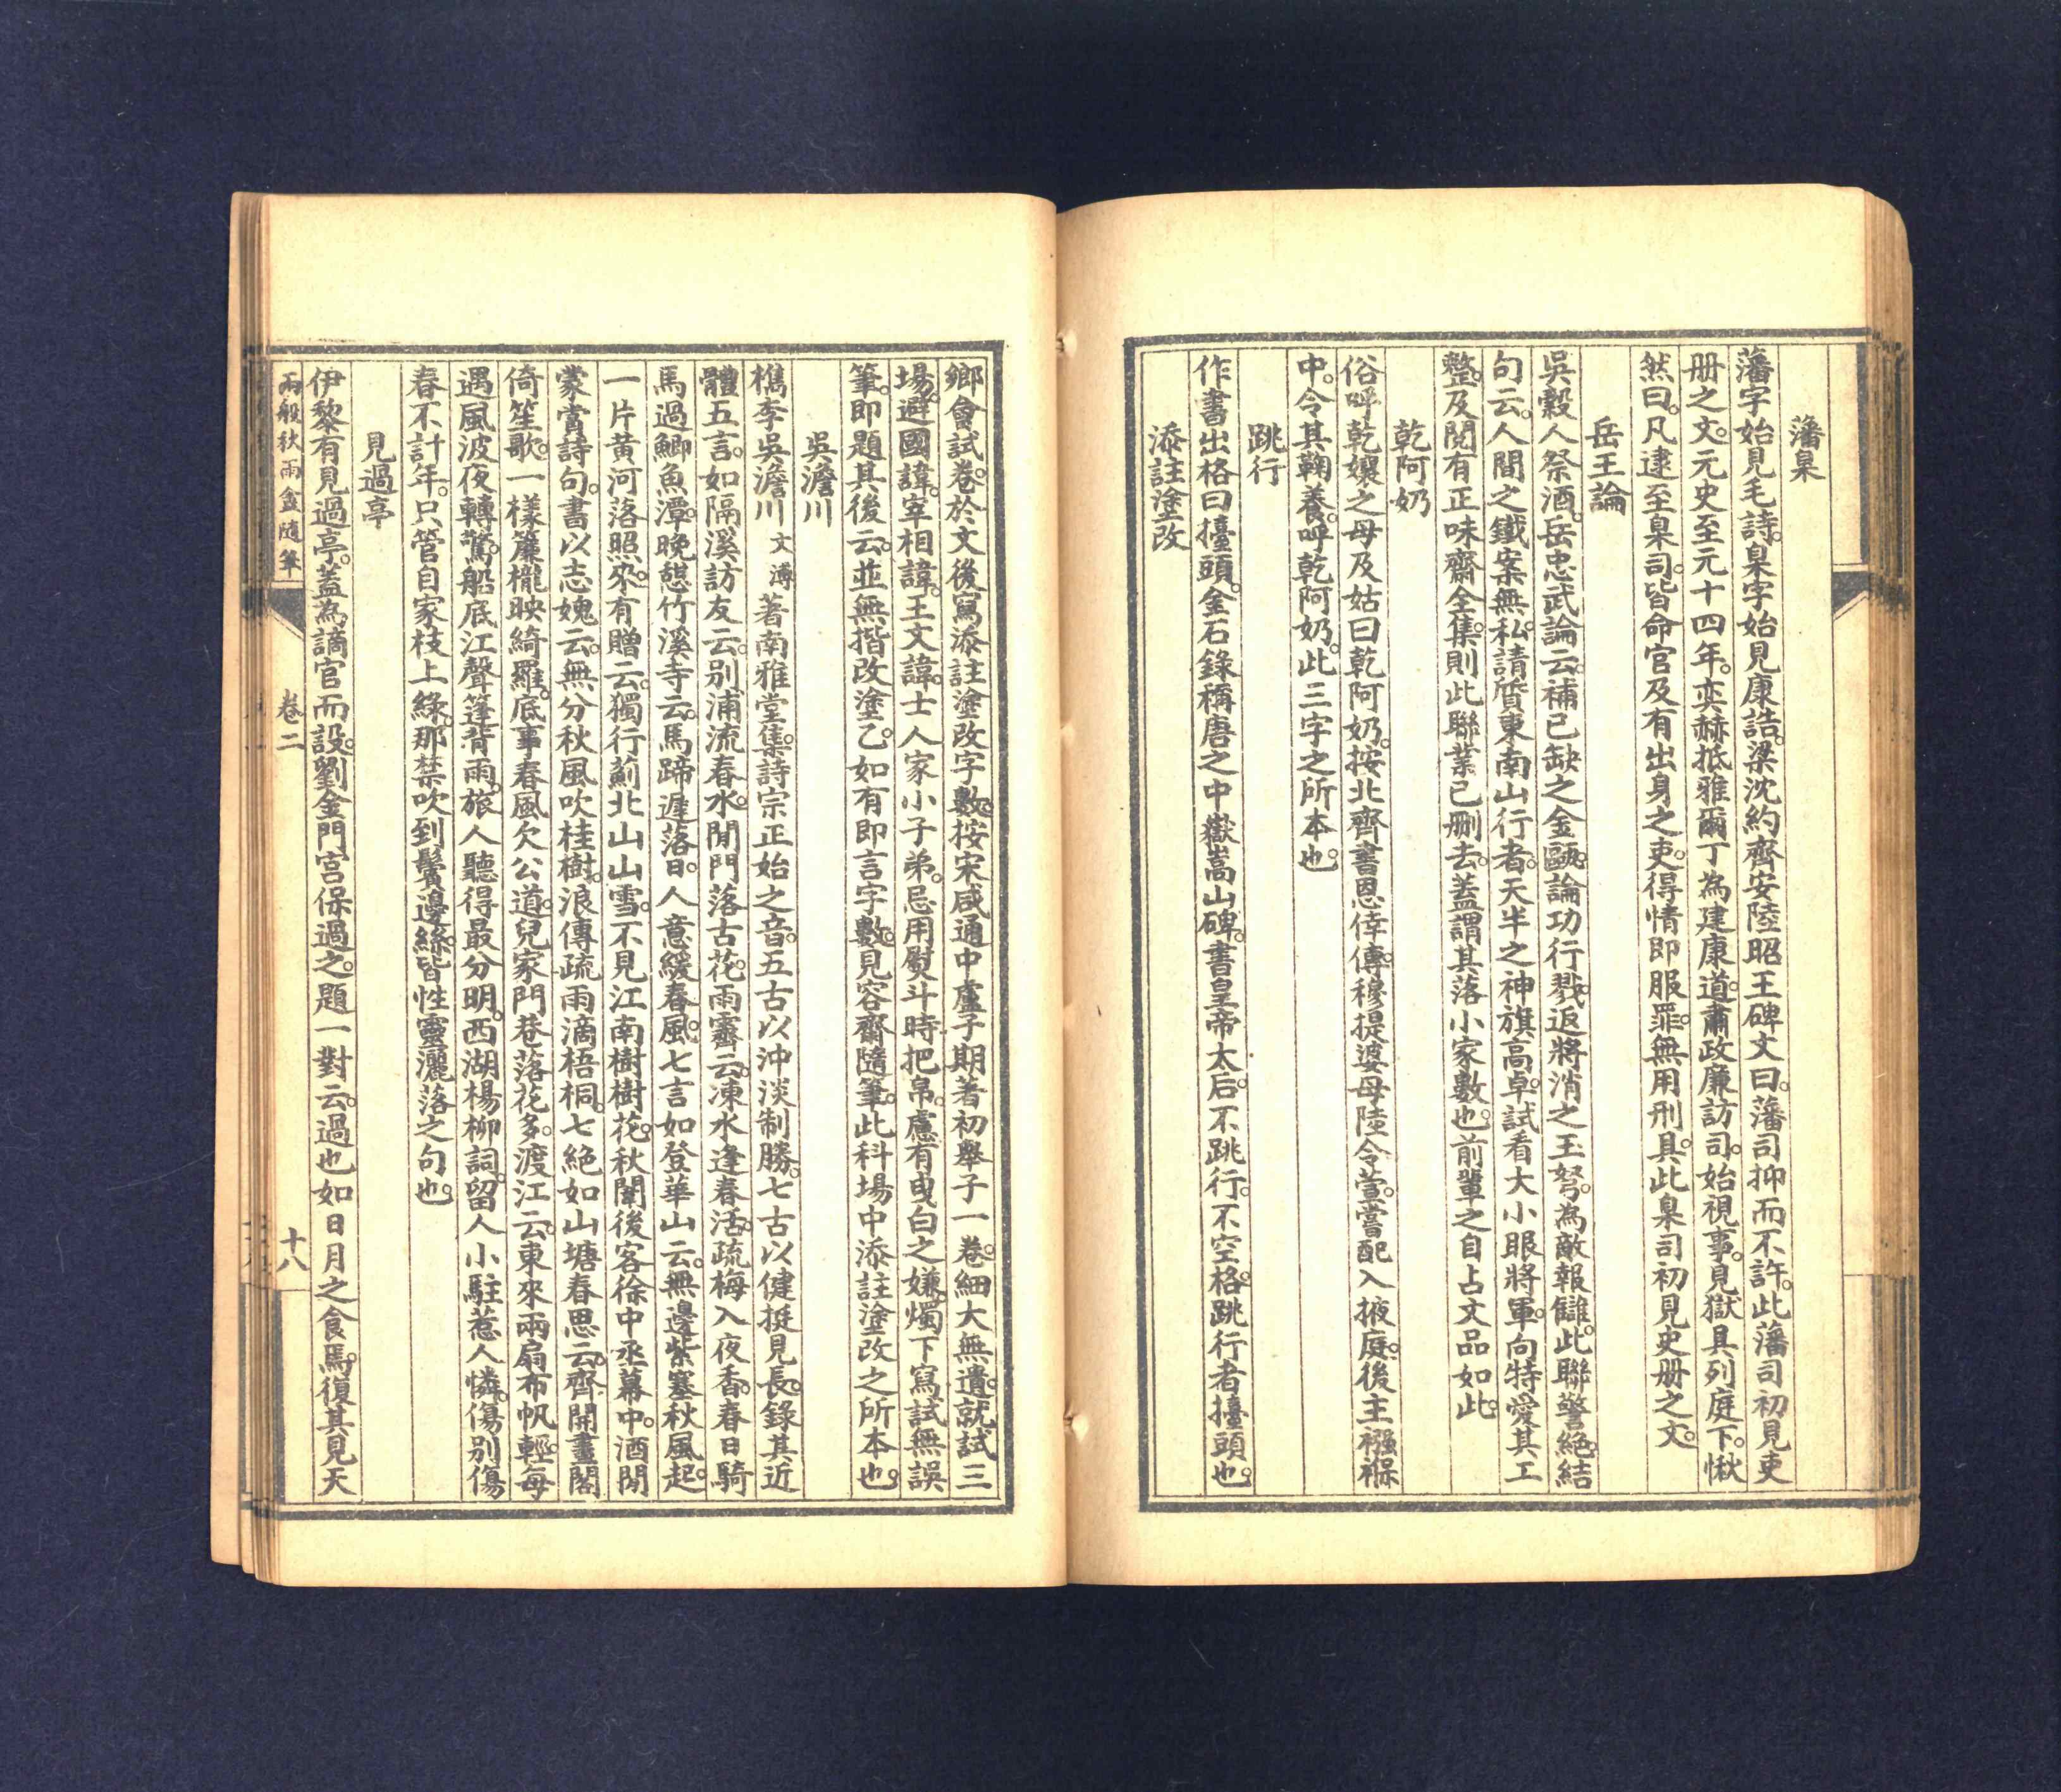 藩臬
藩字始見毛詩。臬字始見康誥。梁沈約齊安陸昭王碑文曰。藩司抑而不許。此藩司初見吏
册之文。元史至元十四年。奕赫抵雅爾丁為建康道肅政廉訪司。始視事。見獄具列庭下。愀
然曰。凡逮至臬司。皆命官及有出身之吏。得情即服罪。無用刑具。此臬司初見史册之文。
岳王論
吳穀人祭酒。岳忠武論云。補已缺之金甌。論功行戮。返將消之玉弩。為敵報讎。此聯警絶。結
句云。人間之鐵案無私。請質東南山行者。天半之神旗高卓。試看大小眼將軍。向特愛其工
整。及閱有正味齋全集。則此聯業已刪去。蓋謂其落小家數也。前輩之自占文品如此。
乾阿奶
俗呼乾孃之母及姑曰乾阿奶。按北齊書恩倖傳。穆提婆母陸令萱。嘗配入掖庭。後主襁褓
中。令其鞠養。呼乾阿奶。此三字之所本也。
跳行
作書出格曰擡頭。金石錄稱唐之中嶽嵩山碑。書皇帝太后。不跳行。不空格。跳行者擡頭也。
添註塗改
鄉會試卷。於文後寫添註塗改字數。按宋咸通中盧子期著初舉子一卷。細大無遺。就試三
場。避國諱。宰相諱。王文諱。士人家小子弟。忌用熨斗時把帛。慮有曳白之嫌。燭下寫試無誤
筆。即題其後云。並無揩改塗乙。如有即言字數。見容齋隨筆。此科場中添註塗改之所本也。
吳澹川
檇李吳澹川文溥著南雅堂集。詩宗正始之音。五古以沖淡制勝。七古以健挺見長。錄其近
體五言。如隔溪訪友云。別浦流春水。閒門落古花。雨霽云。凍水逢春活。疏梅入夜香。春日騎
馬過鯽魚潭。晚憩竹溪寺云。馬蹄遲落日。人意緩春風。七言如登華山云。無邊紫塞秋風起。
一片黄河落照來。有贈云。獨行薊北山山雪。不見江南樹樹花。秋闈後客徐中丞幕中。酒閒
蒙賞詩句。書以志媿云。無分秋風吹桂樹。浪傳疏雨滴梧桐。七絶如山塘春思云。齊開畫閣
倚笙歌。一樣簾櫳映綺羅。底事春風欠公道。兒家門巷落花多。渡江云。東來兩扇布帆輕。每
遇風波夜轉驚。船底江聲篷背雨。旅人聽得最分明。西湖楊柳詞。留人小駐惹人憐。傷別傷
春不計年。只管自家枝上綠。那禁吹到鬢邊絲。皆性靈灑落之句也。
見過亭
伊黎有見過亭。蓋為謫官而設。劉金門宮保過之。題一對云。過也如日月之食焉。復其見天
兩般秋雨盦隨筆
卷二
十八